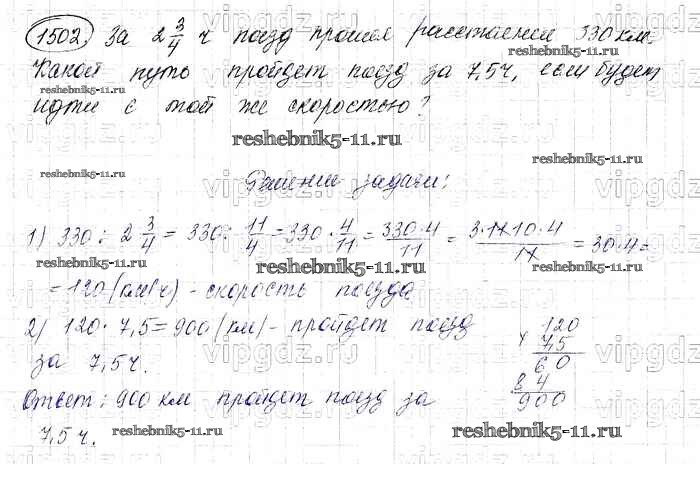 1502. За 2 3/4 ч поезд прошел расстояние 330 км.
Какой путь пройдет поезд за 7,5ч, если будет
идти с той же скоростью?
Решение задачи:
1) 330 : 2 3/4 = 330 : 11/4 = 330 · 4/11 = 330·4/11 = 3·11·10·4/11 = 30·4 =
= 120 (км/ч) - скорость поезда
2) 120 · 7,5 = 900 (км) - пройдет поезд
за 7,5ч.
120
× 7,5
60
84
900
Ответ: 900 км пройдет поезд за
7,5ч.
reshebnik5-11.ru
reshebnik5-11.ru
reshebnik5-11.ru
reshebnik5-11.ru
reshebnik5-11.ru
reshebnik5-11.ru
reshebnik5-11.ru
reshebnik5-11.ru
reshebnik5-11.ru
reshebnik5-11.ru
vipgdz.ru
vipgdz.ru
vipgdz.ru
vipgdz.ru